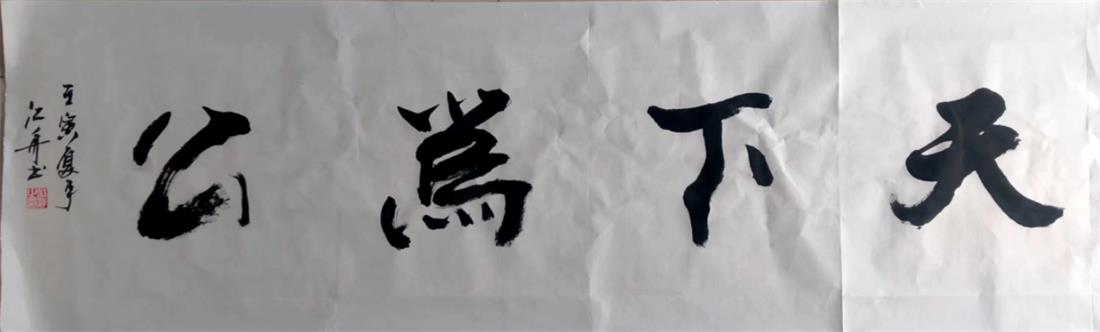 天下為公
壬寅夏于
江舟书